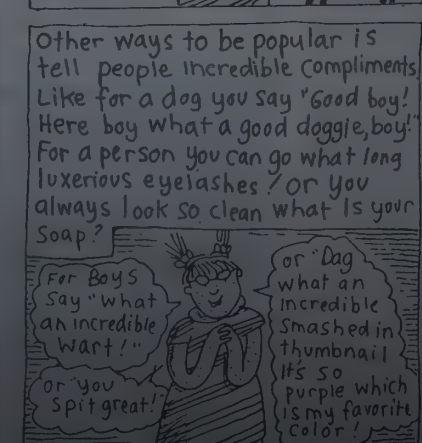 Other ways to be popular is
tell people incredible compliments.
Like for a dog you say "Good boy!
Here boy what a good doggie, boy!"
For a person you can go what long
luxerious eyelashes! Or you
always look so clean what is your
soap?
For Boys
say "What
an incredible
wart!"
or "you
spit great!"
or "Dag
what an
incredible
smashed in
thumbnail
it's so
purple which
is my favorite
color!